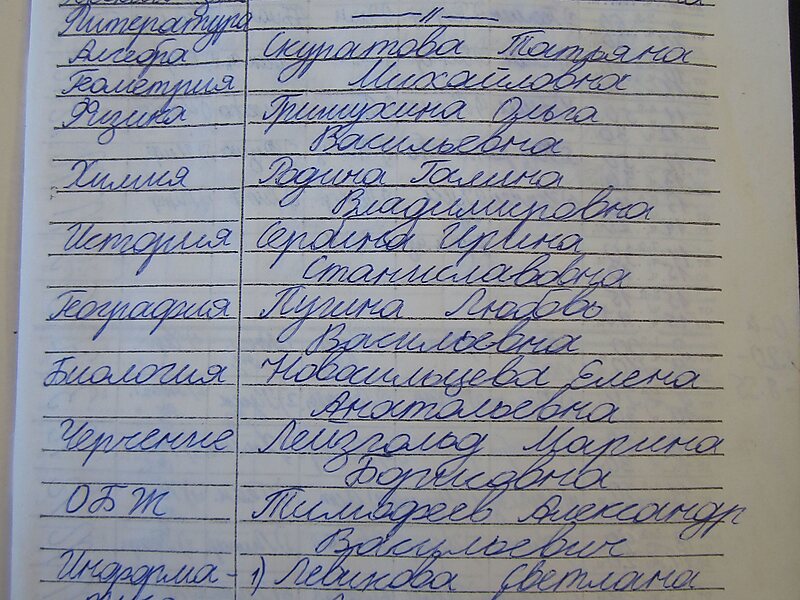 Литература — " —
Алгебра Скуратова Татьяна
Геометрия Михайловна
Физика Гришухина Ольга
Васильевна
Химия Родина Галина
Владимировна
История Ирина
Станиславовна
География Пугина Любовь
Васильевна
Биология Новосильцева Елена
Анатольевна
Черчение Лейзгольд Марина
Борисовна
ОБЖ Тимофеев Александр
Васильевич
Информа- 1) Левикова Светлана